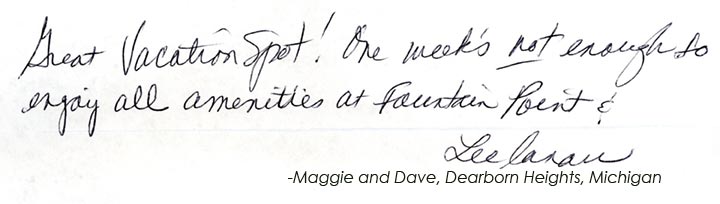 Great Vacation Spot! One week's not enough to
enjoy all amenities at Fountain Point &
Leelanau
-Maggie and Dave, Dearborn Heights, Michigan